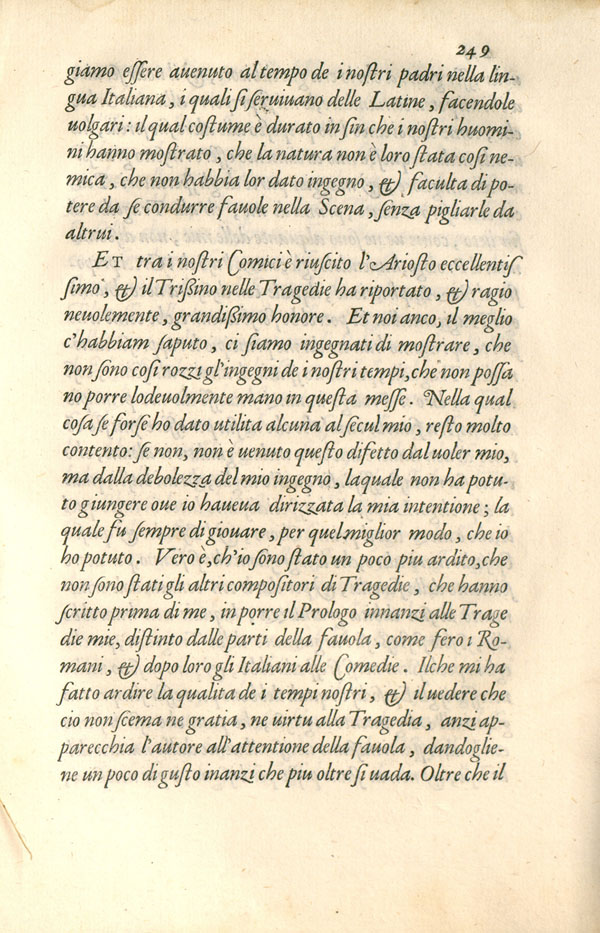 249
giamo essere auenuto al tempo de i nostri padri nella lin-
gua Italiana, i quali si seruiuano delle Latine, facendole
uolgari: il qual costume è durato in sin che i nostri huomi-
ni hanno mostrato, che la natura non è loro stata cosi ne-
mica, che non habbia lor dato ingegno, & faculta di po-
tere da se condurre fauole nella Scena, senza pigliarle da
altrui.
ET tra i nostri Comici è riuscito l'Ariosto eccellentis
simo, & il Trißino nelle Tragedie ha riportato, & ragio
neuolemente, grandißimo honore. Et noi anco, il meglio
c'habbiam saputo, ci siamo ingegnati di mostrare, che
non sono cosi rozzi gl'ingegni de i nostri tempi, che non possa
no porre lodeuolmente mano in questa messe. Nella qual
cosa se forse ho dato utilita alcuna al secul mio, resto molto
contento: se non, non è uenuto questo difetto dal uoler mio,
ma dalla debolezza del mio ingegno, laquale non ha potu-
to giungere oue io haueua dirizzata la mia intentione; la
quale fu sempre di giouare, per quel miglior modo, che io
ho potuto. Vero è, ch'io sono stato un poco piu ardito, che
non sono stati gli altri compositori di Tragedie, che hanno
scritto prima di me, in porre il Prologo innanzi alle Trage
die mie, distinto dalle parti della fauola, come fero i Ro-
mani, & dopo loro gli Italiani alle Comedie. Ilche mi ha
fatto ardire la qualita de i tempi nostri, & il uedere che
cio non scema ne gratia, ne uirtu alla Tragedia, anzi ap-
parecchia l'autore all'attentione della fauola, dandoglie-
ne un poco di gusto inanzi che piu oltre si uada. Oltre che il